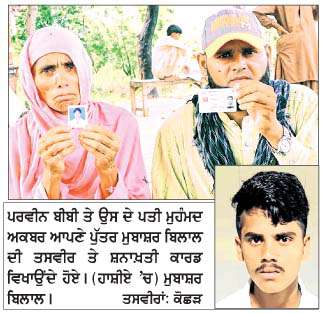 ਪਰਵੀਨ ਬੀਬੀ ਤੇ ਉਸ ਦੇ ਪਤੀ ਮੁਹੰਮਦ
ਅਕਬਰ ਆਪਣੇ ਪੁੱਤਰ ਮੁਬਾਸ਼ਰ ਬਿਲਾਲ
ਦੀ ਤਸਵੀਰ ਤੇ ਸ਼ਨਾਖ਼ਤੀ ਕਾਰਡ
ਵਿਖਾਉਂਦੇ ਹੋਏ। (ਹਾਸ਼ੀਏ ’ਚ) ਮੁਬਾਸ਼ਰ
ਬਿਲਾਲ। ਤਸਵੀਰਾਂ: ਕੋਛੜ